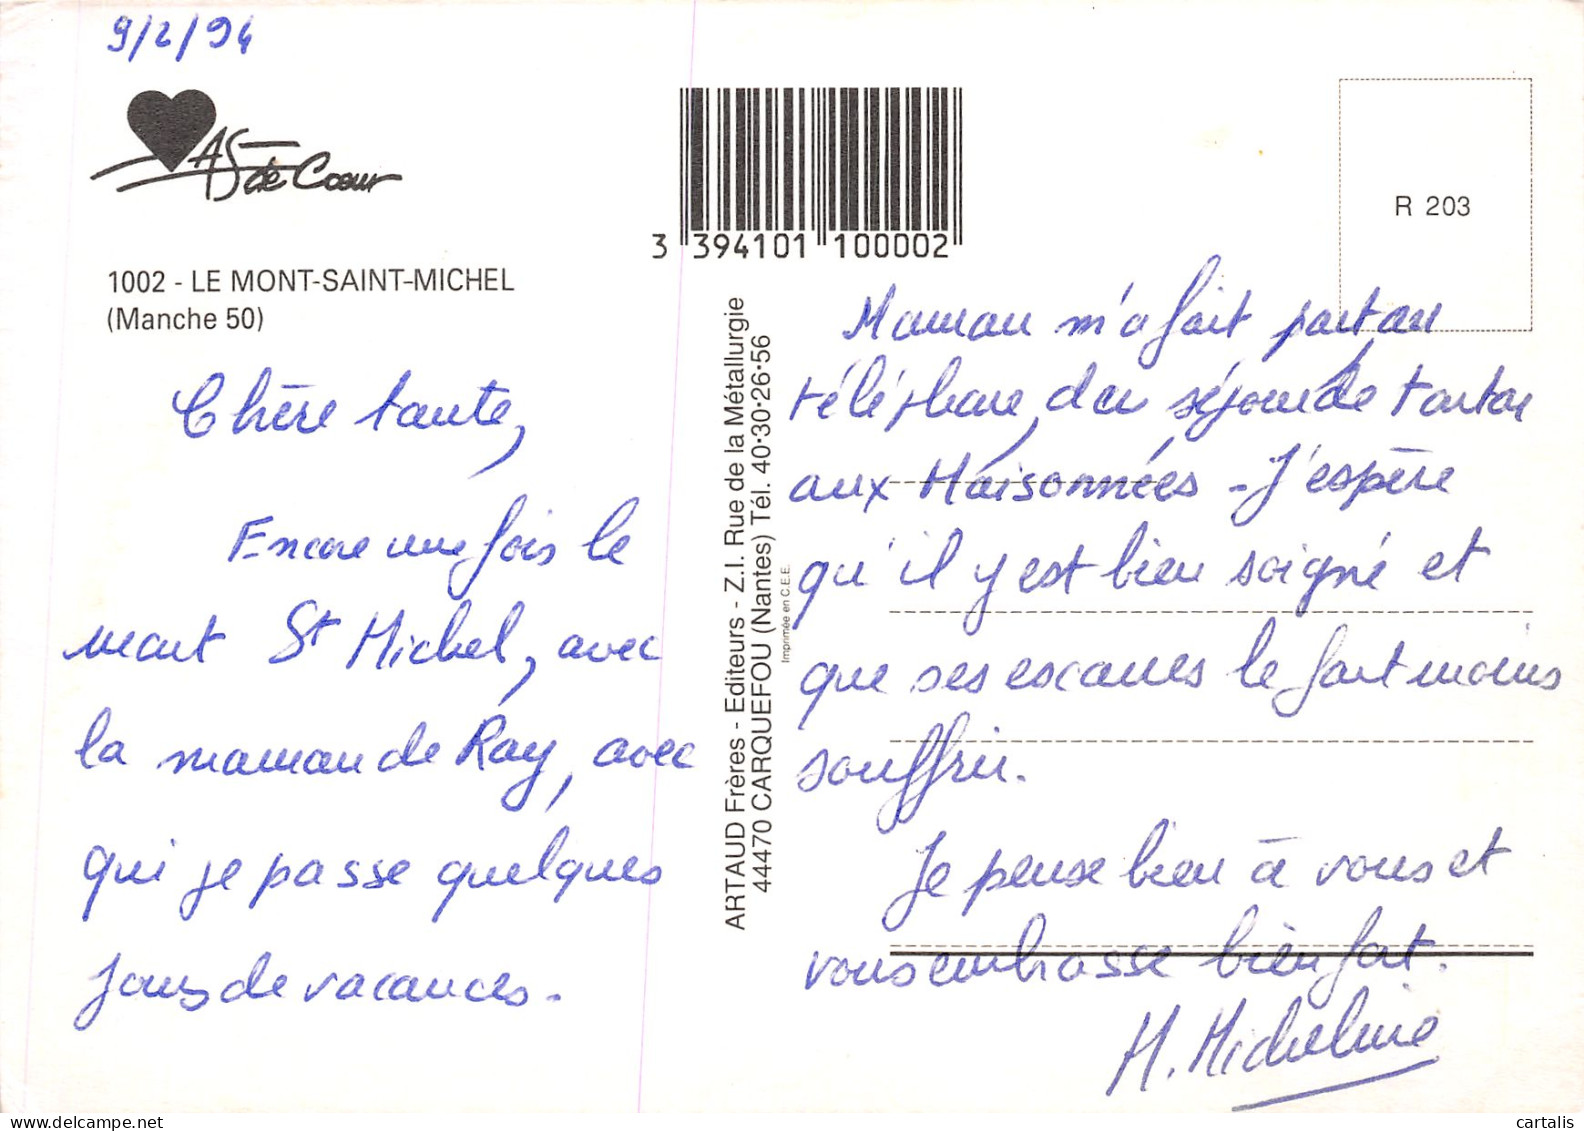 9/2/94
As de Coeur
1002 - LE MONT-SAINT-MICHEL
(Manche 50)
Chère tante,
Encore une fois le
mont St Michel, avec
la maman de Ray, avec
qui je passe quelques
jours de vacances.
3 394101 100002
ARTAUD Frères - Editeurs - Z.I. Rue de la Métallurgie
44470 CARQUEFOU (Nantes) Tél. 40·30·26·56
Imprimée en C.E.E.
R 203
Maman m'a fait part au
téléphone, du séjour de tonton
aux Maisonnées - J'espère
qu'il y est bien soigné et
que ses escarres le font moins
souffrir.
Je pense bien à vous et
vous embrasse bien fort.
M. Micheline
cartalis